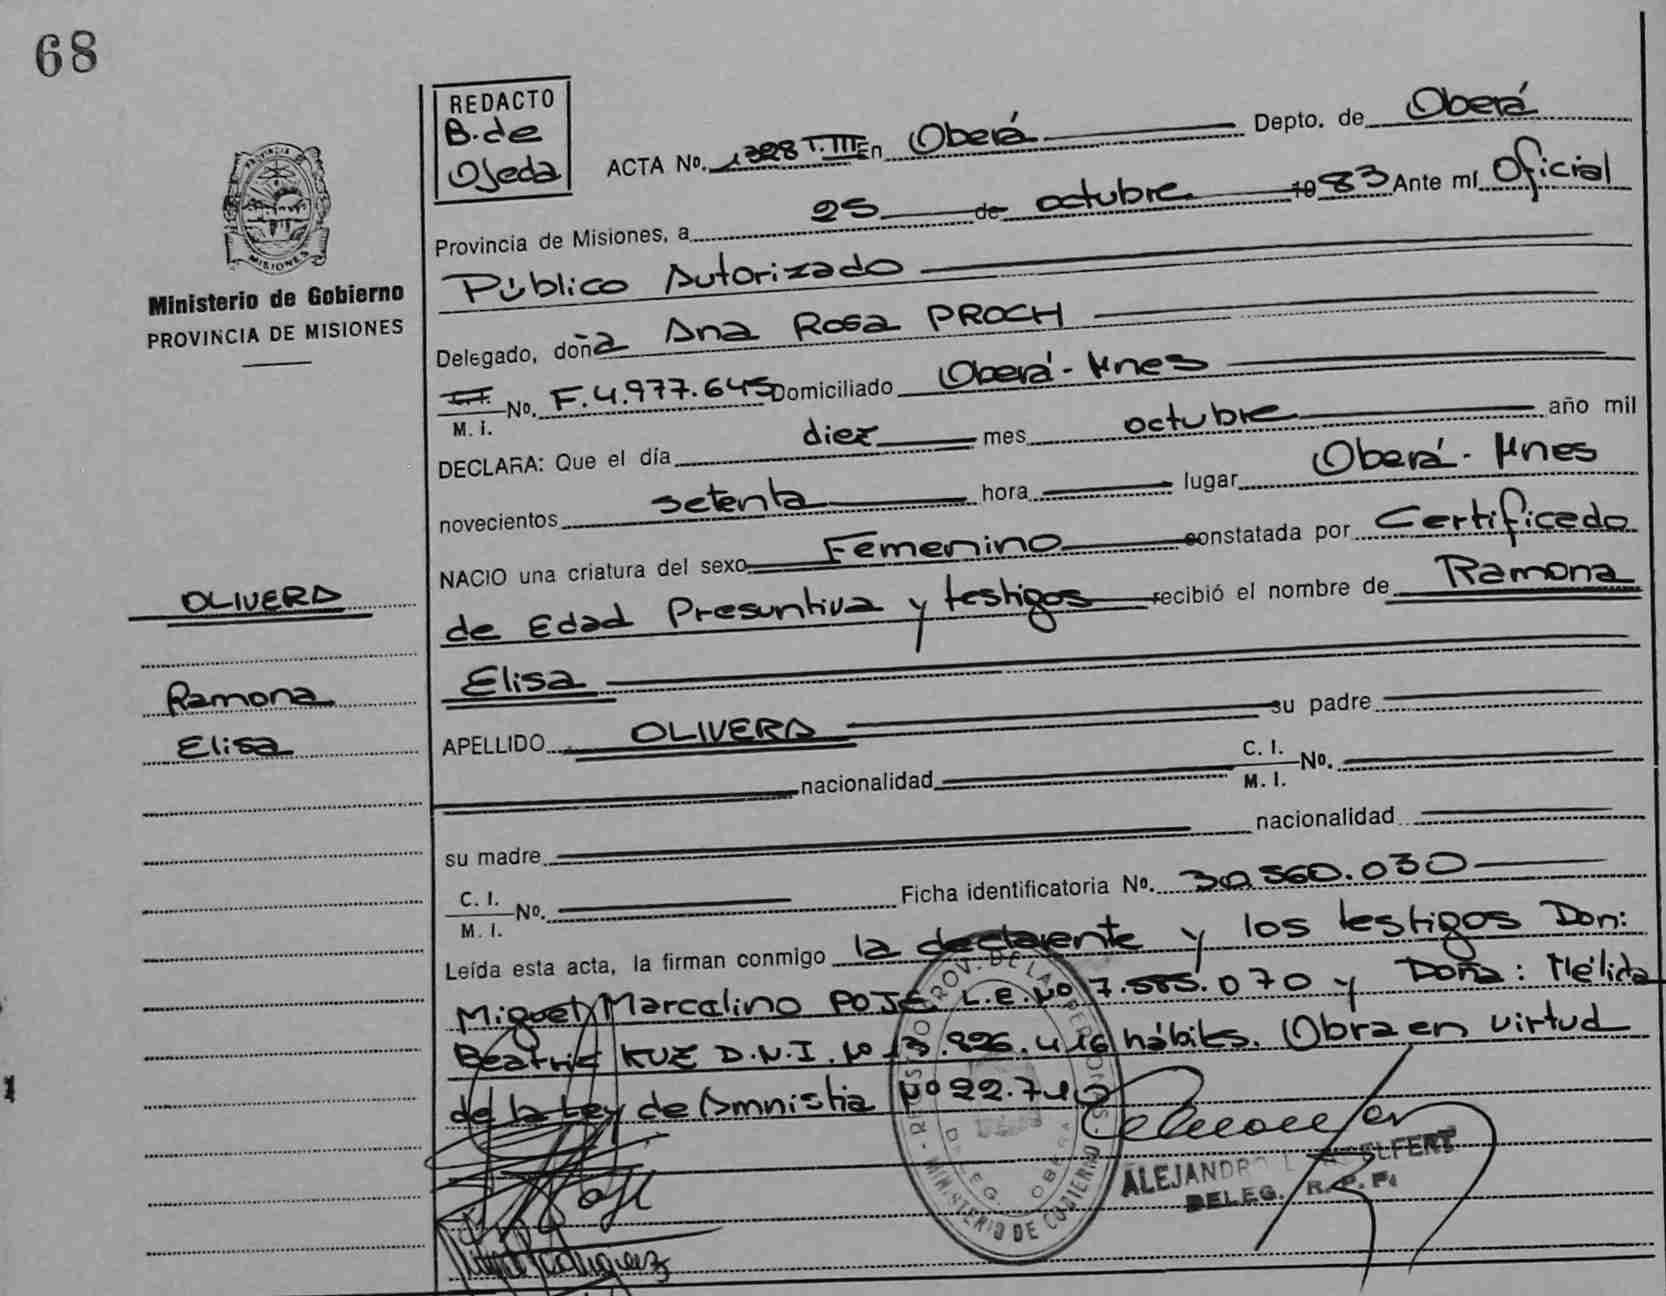 68
REDACTO
B. de
Ojeda
ACTA No. 1328 T. III En Oberá Depto. de Oberá
Provincia de Misiones, a 25 de octubre 1983 Ante mí Oficial
Público Autorizado
Delegado, doña Ana Rosa PROCH
C.I.
M. I. No. F. 4.977.645 Domiciliado Oberá - Mnes
DECLARA: Que el día diez mes octubre año mil
novecientos setenta hora lugar Oberá - Mnes
NACIO una criatura del sexo Femenino constatada por Certificado
de Edad Presuntiva y testigos recibió el nombre de Ramona
Elisa
APELLIDO OLIVERA su padre
nacionalidad C. I. M. I. No.
su madre nacionalidad
C. I. M. I. No. Ficha identificatoria No. 30.560.030
Leída esta acta, la firman conmigo la declarente y los testigos Don:
Miguel Marcelino POJE L.E. Nº 7.585.070 y Doña: Nélida
Beatriz KUZ D.N.I. Nº 13.896.416 hábiles. Obra en virtud
de la Ley de Amnistia Nº 22.740
PROVINCIA
MISIONES
Ministerio de Gobierno
PROVINCIA DE MISIONES
OLIVERA
Ramona
Elisa
PROV. DE LAS PERSONAS
MINISTERIO DE GOBIERNO
DELEG. OBERA
ALEJANDRO
DELEG. R. P. P.